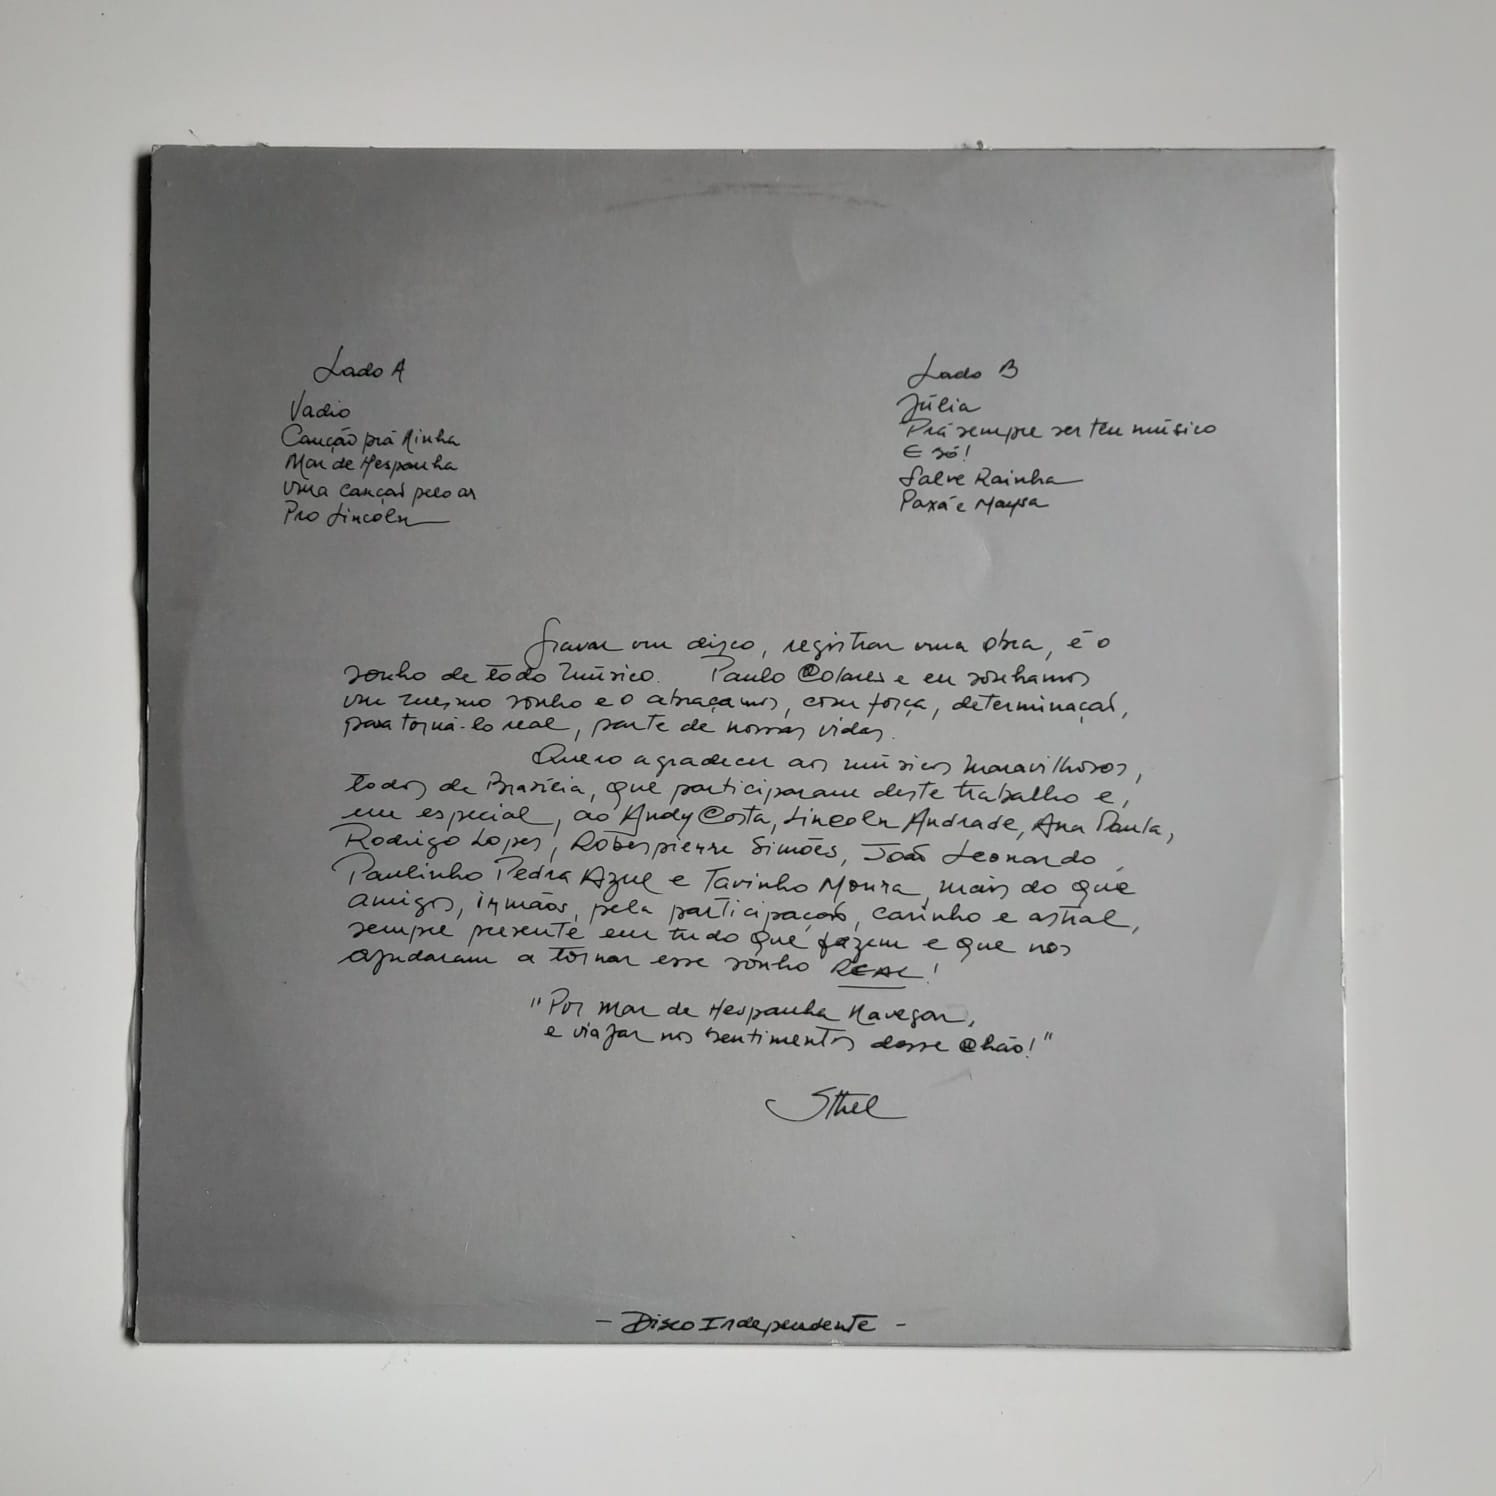 Lado A
Vadio
Canção prá Ninha
Mar de Hespanha
Uma canção pelo ar
Pro Lincoln
Lado B
Júlia
Prá sempre ser teu músico
E só!
Salve Rainha
Paxá e Maysa
Gravar um disco, registrar uma obra, é o
sonho de todo músico. Paulo Colares e eu sonhamos
um mesmo sonho e o abraçamos, com força, determinação,
para torná-lo real, parte de nossas vidas.
Quero agradecer aos músicos maravilhosos,
todos de Brasília, que participaram deste trabalho e,
em especial, ao Andy Costa, Lincoln Andrade, Ana Paula,
Rodrigo Lopes, Robespierre Simões, João Leonardo,
Paulinho Pedra Azul e Tavinho Moura, mais do que
amigos, irmãos, pela participação, carinho e astral,
sempre presente em tudo que fazem e que nos
ajudaram a tornar esse sonho REAL!
"Por Mar de Hespanha Navegar,
e viajar nos sentimentos desse chão!"
Sthel
- Disco Independente -